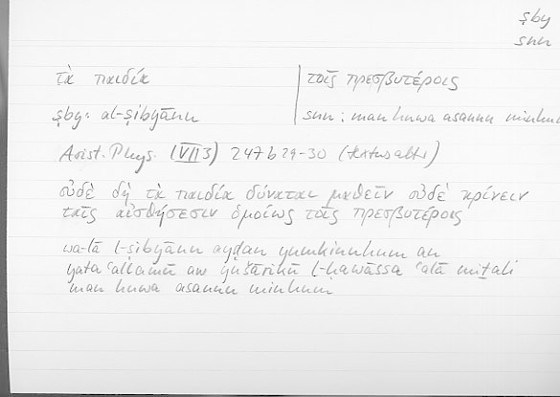 ṣby
snn
τὰ παιδία | τοῖς πρεσβυτέροις
ṣby: al-ṣibyānu | snn: man huwa asannu minhum
Arist. Phys. (VII 3) 247b29-30 (textus alt.)
οὐδὲ δὴ τὰ παιδία δύναται μαθεῖν οὐδὲ κρίνειν
ταῖς αἰσθήσεσιν ὁμοίως τοῖς πρεσβυτέροις
wa-lā l-ṣibyānu ayḍan yumkinuhum an
yataʿallamū aw yušārikū l-ḥawāssa ʿalā miṯali
man huwa asannu minhum